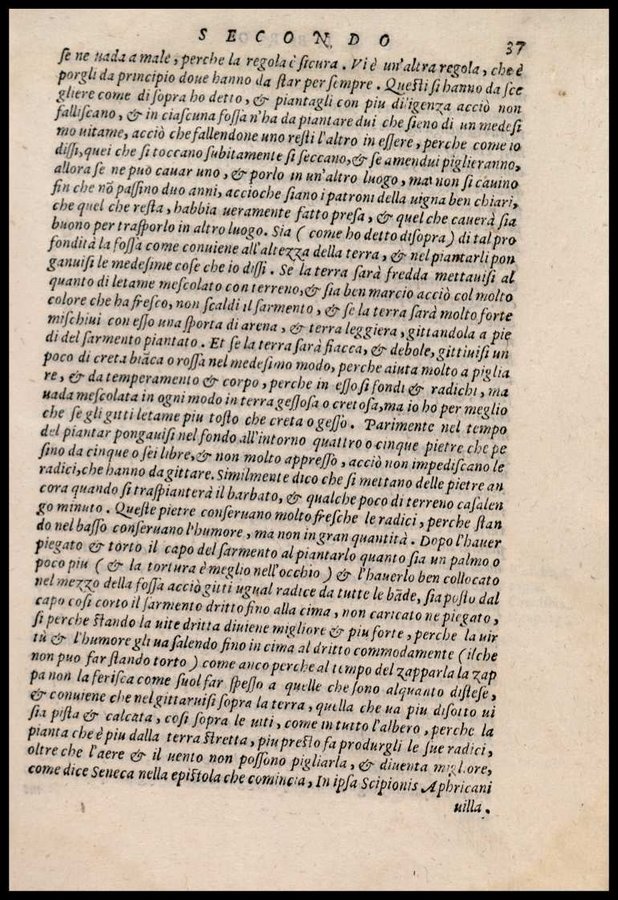 SECONDO 37
se ne uada a male, perche la regola è sicura. Vi è un'altra regola, che è
porgli da principio doue hanno da star per sempre. Questi si hanno da sce
gliere come di sopra ho detto, & piantagli con piu diligenza acciò non
falliscano, & in ciascuna fossa n'ha da piantare dui che sieno di un medesi
mo uitame, acciò che fallendone uno resti l'altro in essere, perche come io
dissi, quei che si toccano subitamente si seccano, & se amendui piglieranno,
allora se ne può cauar uno, & porlo in un'altro luogo, ma non si cauino
fin che nō passino dui anni, accioche siano i patroni della uigna ben chiari,
che quel che resta, habbia ueramente fatto presa, & quel che cauerà sia
buono per trasporlo in altro luogo. Sia ( come ho detto disopra ) di tal pro
fondità la fossa come conuiene all'altezza della terra, & nel piantarli pon
ganuisi le medesime cose che io dissi. Se la terra sarà fredda mettauisi al
quanto di letame mescolato con terreno, & sia ben marcio acciò col molto
colore che ha fresco, non scaldi il sarmento, & se la terra sarà molto forte
mischiui con esso una sporta di arena, & terra leggiera, gittandola a pie
di del sarmento piantato. Et se la terra sarà fiacca, & debole, gittiuisi un
poco di creta biāca o rossa nel medesimo modo, perche aiuta molto a piglia
re, & da temperamento & corpo, perche in esso si fondi & radichi, ma
uada mescolata in ogni modo in terra gessosa o cretosa, ma io ho per meglio
che se gli gitti letame piu tosto che creta o gesso. Parimente nel tempo
del piantar pongauisi nel fondo all'intorno quattro o cinque pietre che pe
sino da cinque o sei libre, & non molto appresso, acciò non impediscano le
radici, che hanno da gittare. Similmente dico che si mettano delle pietre an
cora quando si traspianterà il barbato, & qualche poco di terreno casalen
go minuto. Queste pietre conseruano molto fresche le radici, perche stan
do nel basso conseruano l'humore, ma non in gran quantità. Dopo l'hauer
piegato & torto il capo del sarmento al piantarlo quanto sia un palmo o
poco piu ( & la tortura è meglio nell'occhio ) & l'hauerlo ben collocato
nel mezzo della fossa acciò gitti ugual radice da tutte le bāde, sia posto dal
capo cosi corto il sarmento dritto fino alla cima, non caricato ne piegato,
si perche stando la uite dritta diuiene migliore & piu forte, perche la uir
tù & l'humore gli ua salendo fino in cima al dritto commodamente (ilche
non puo far stando torto ) come anco perche al tempo del zapparla la zap
pa non la ferisca come suol far spesso a quelle che sono alquanto distese,
& conuiene che nel gittaruisi sopra la terra, quella che ua piu disotto ui
sia pista & calcata, cosi sopra le uiti, come in tutto l'albero, perche la
pianta che è piu dalla terra stretta, piu presto fa produrgli le sue radici,
oltre che l'aere & il uento non possono pigliarla, & diuenta migliore,
come dice Seneca nella epistola che comincia, In ipsa Scipionis Aphricani
uilla.